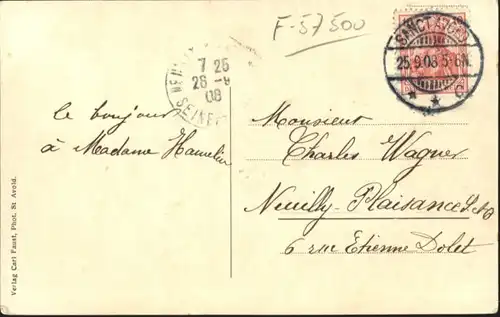 F-57500
SANCT AVOLD
25.9.08 5-6N.
* * C
7 25
26 -9
08
le bonjour
à Madame Hamelin
Monsieur
Charles Wagner
Neuilly-Plaisance S. & O
6 rue Etienne Dolet
Verlag Carl Faust, Phot. St Avold.